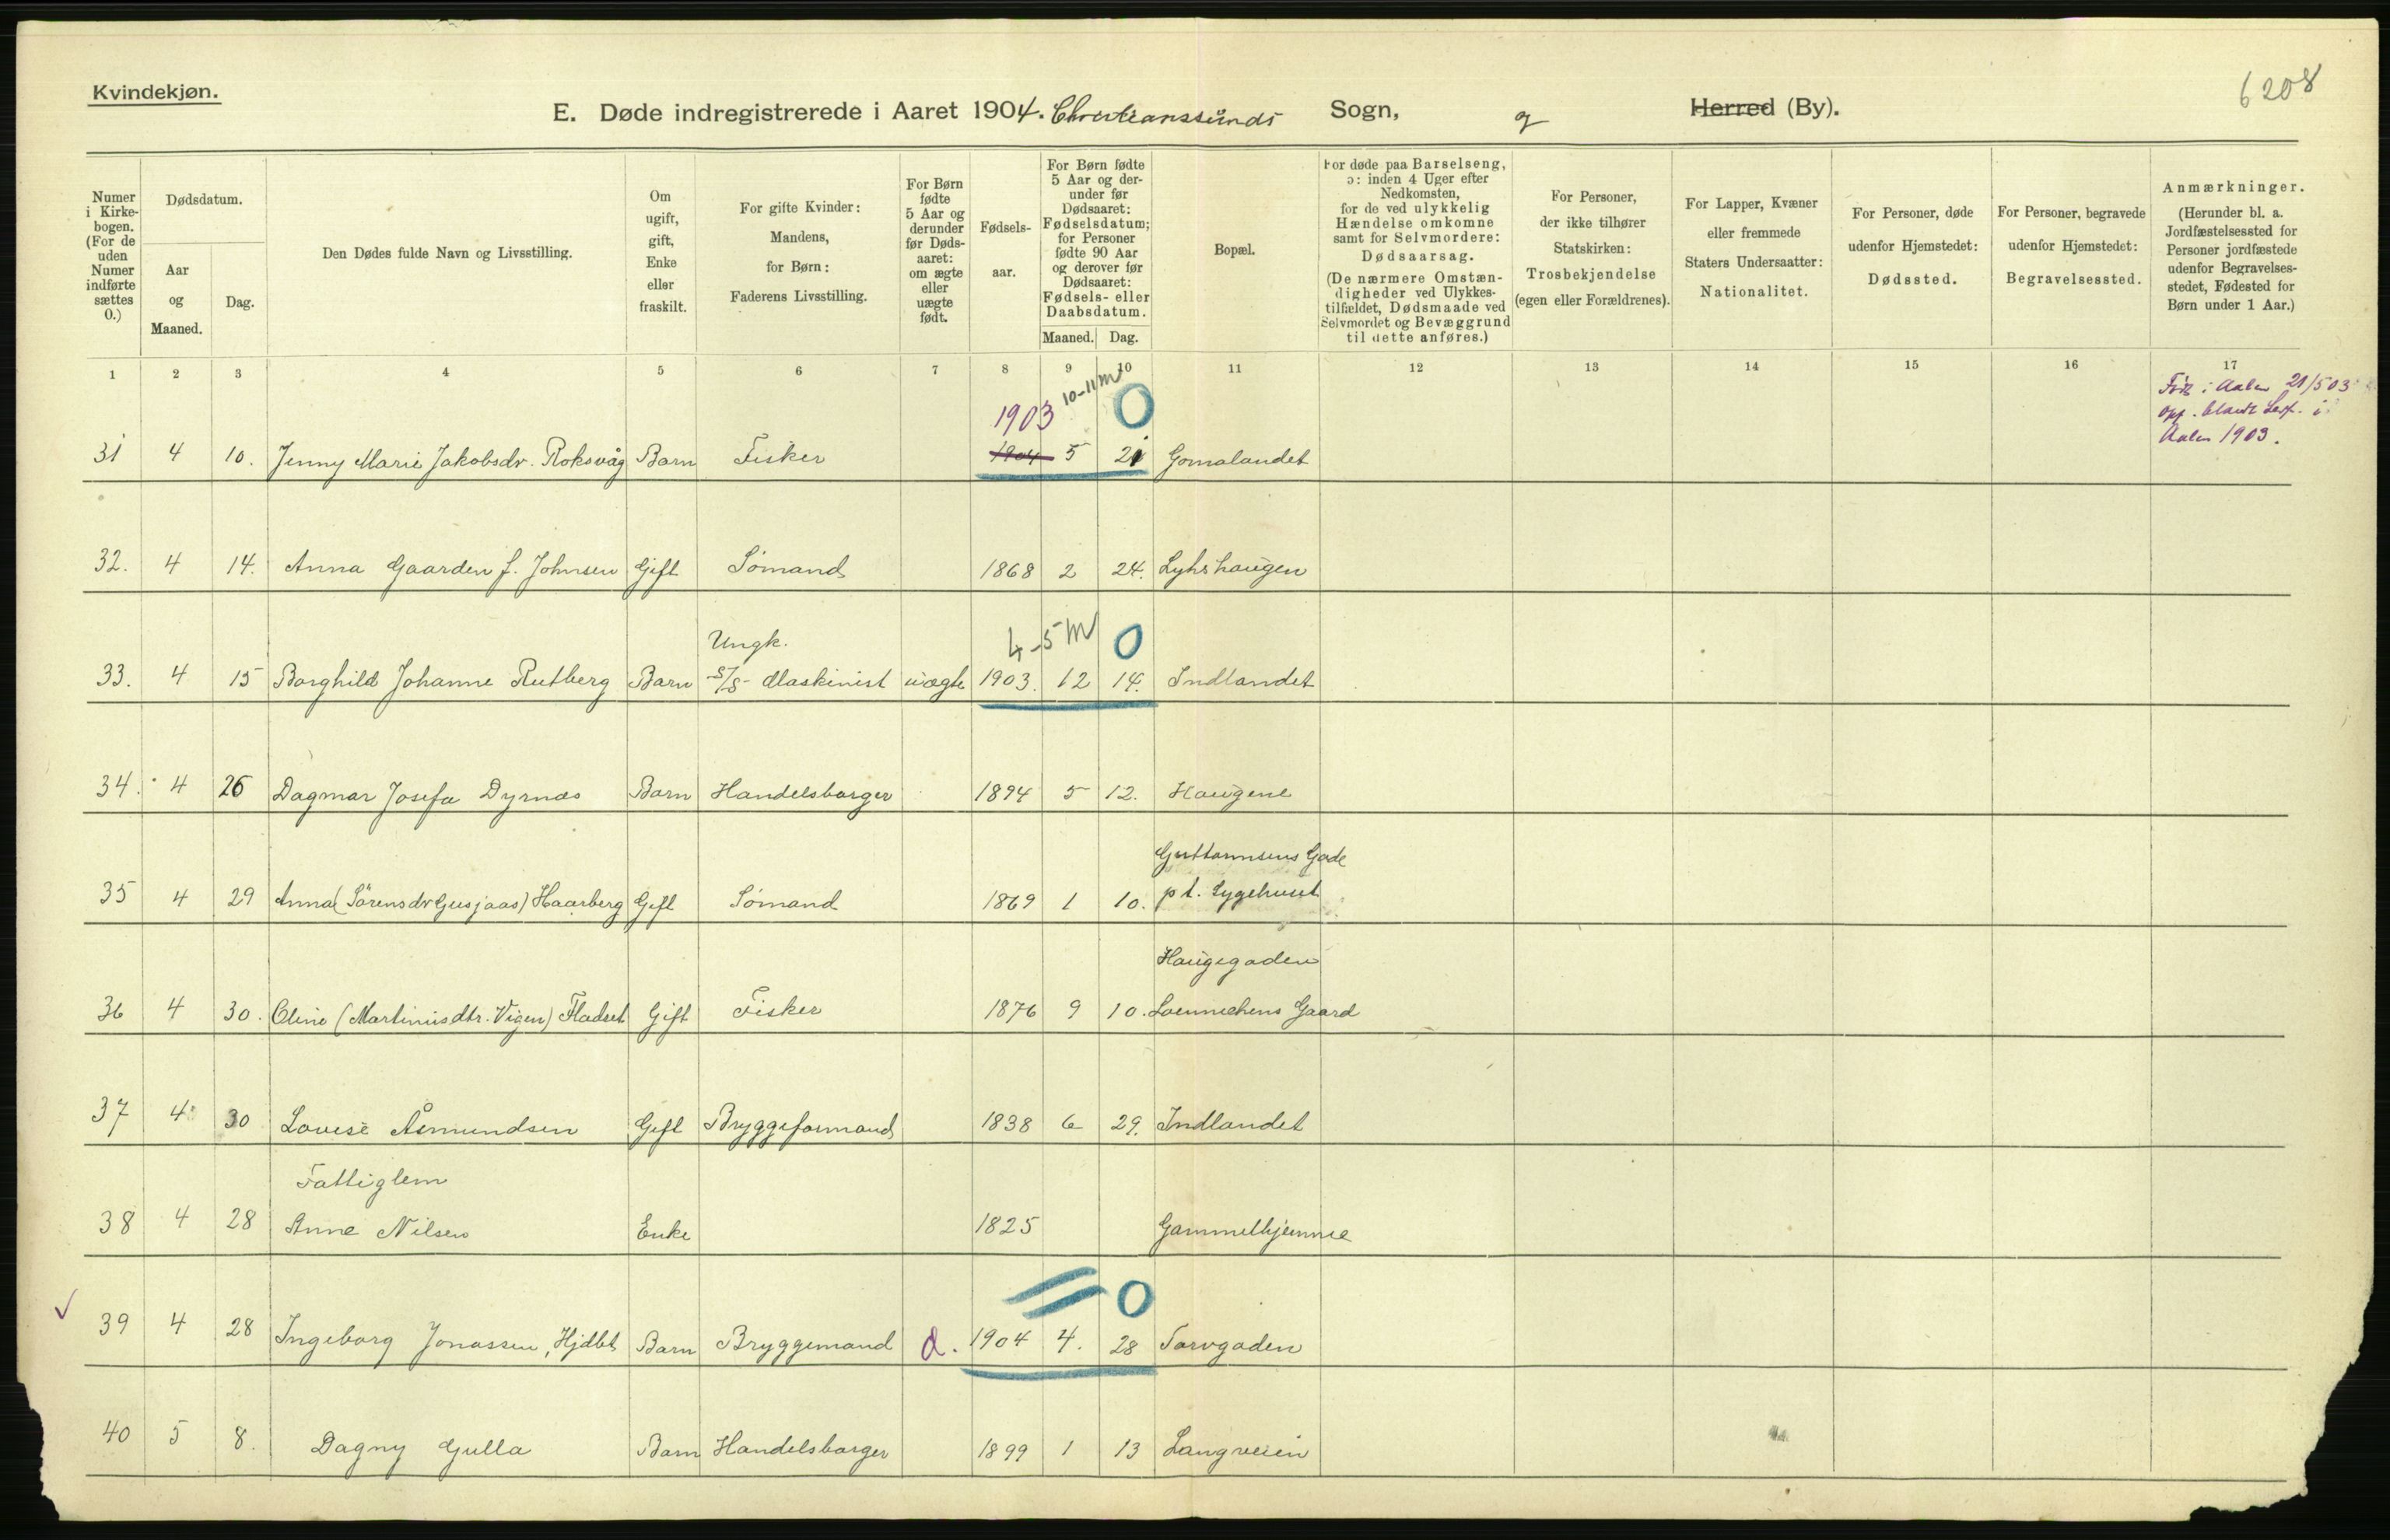 Kvindekjøn.
6208
E. Døde indregistrerede i Aaret 1904. Christianssunds Sogn, Herred (By).
Numer i Kirkebogen. (For de uden Numer indførte sættes 0.)
Dødsdatum.
Aar og Maaned.
Dag.
Den Dødes fulde Navn og Livsstilling.
Om ugift, gift, Enke eller fraskilt.
For gifte Kvinder: Mandens, for Børn: Faderens Livsstilling.
For Børn fødte 5 Aar og derunder før Dødsaaret: om ægte eller uægte født.
Fødselsaar.
For Børn fødte 5 Aar og derunder før Dødsaaret: Fødselsdatum; for Personer fødte 90 Aar og derover før Dødsaaret: Fødsels- eller Daabsdatum.
Maaned. Dag.
Bopæl.
For døde paa Barselseng, ɔ: inden 4 Uger efter Nedkomsten, for de ved ulykkelig Hændelse omkomne samt for Selvmordere: Dødsaarsag. (De nærmere Omstændigheder ved Ulykkestilfældet, Dødsmaade ved Selvmordet og Bevæggrund til dette anføres.)
For Personer, der ikke tilhører Statskirken: Trosbekjendelse (egen eller Forældrenes).
For Lapper, Kvæner eller fremmede Staters Undersaatter: Nationalitet.
For Personer, døde udenfor Hjemstedet: Dødssted.
For Personer, begravede udenfor Hjemstedet: Begravelsessted.
Anmærkninger. (Herunder bl. a. Jordfæstelsessted for Personer jordfæstede udenfor Begravelsesstedet, Fødested for Børn under 1 Aar.)
1 2 3 4 5 6 7 8 9 10 11 12 13 14 15 16 17
1903 10-11 m 0
Født i Aalen 21/5 03
opf. blandt Lef. i
Aalen 1903.
31 4 10. Jenny Marie Jakobsdr. Roksvåg Barn Fisker 1904 5 21 Gomalandet
32. 4 14. Anna Gaarden f. Johnsen Gift Sømand 1868 2 24. Lyhshaugen
Ungk. 4-5 m 0
33. 4 15 Borghild Johanne Rutberg Barn S/S Maskinist uægte 1903. 12 14. Indlandet
34. 4 26 Dagmar Josefa Dyrnæs Barn Handelsborger 1894 5 12. Haugene
Guttormsens Gade
35 4 29 Anna (Sörensdr Gusjaas) Haarberg Gift Sømand 1869 1 10. p t. Sygehuset
Haugegaden
36 4 30. Oline (Martinusdtr. Vigen) Fladset Gift Fisker 1876 9 10. Loennechens Gaard
37 4 30 Lovise Åsmundsen Gift Bryggeformand 1838 6 29. Indlandet
Fattiglem
38 4 28 Anne Nilsen Enke 1825 Gammelhjemme
0
39 4 28 Ingeborg Jonassen, Hjdbt Barn Bryggemand d. 1904 4. 28 Torvgaden
40 5 8. Dagny Gulla Barn Handelsborger 1899 1 13 Langveien